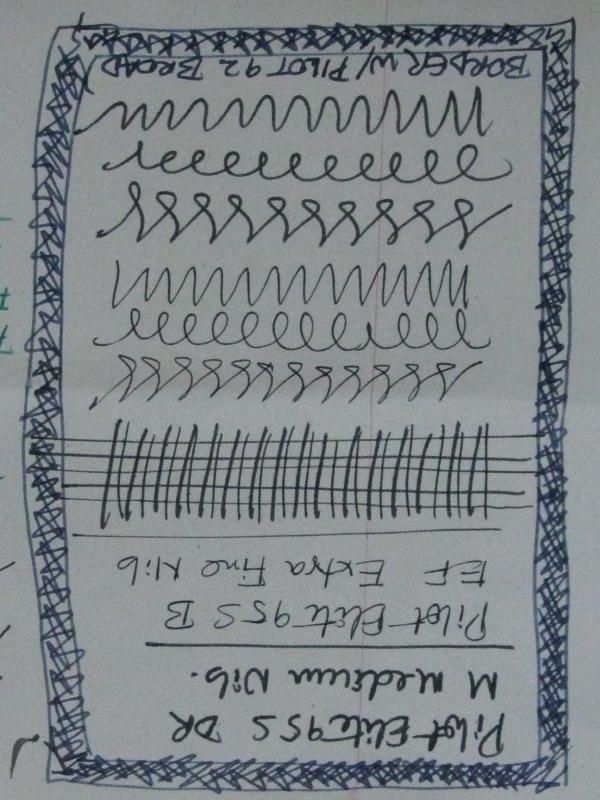 Pilot Elite 95 S DR
M Medium Nib.
Pilot Elite 95 S B
EF Extra Fine Nib
BORDER W/ PILOT 92 BROAD